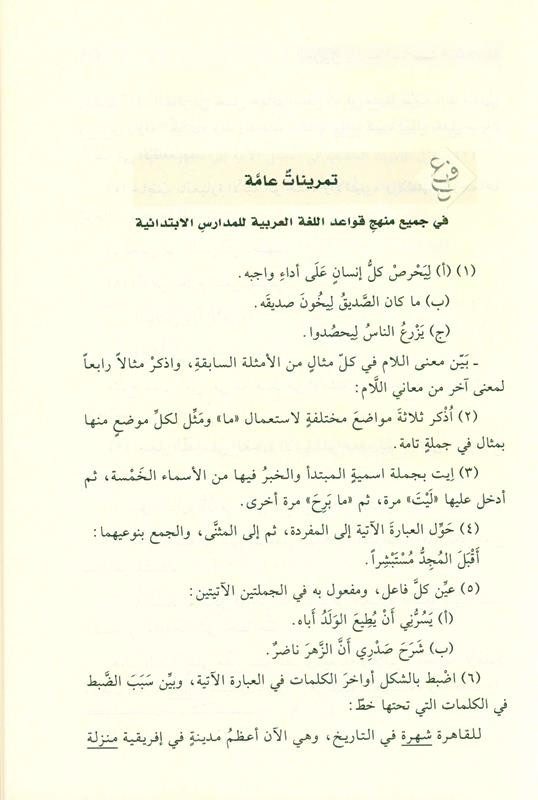 تمريناتٌ عامَّة
في جميع منهج قواعد اللغة العربية للمدارس الابتدائية
(١) (أ) لِيَحْرِصْ كلُّ إنسانٍ عَلَى أداءِ واجبه.
(ب) ما كان الصَّديقُ لِيخُونَ صديقَه.
(ج) يَزْرعُ الناسُ لِيحصُدوا.
ـ بَيِّن معنى اللام في كلّ مثالٍ من الأمثلة السابقةِ، واذكرْ مثالاً رابعاً
لمعنى آخر من معاني اللَّام:
(٢) اُذْكر ثلاثةَ مواضعَ مختلفةٍ لاستعمال «ما» ومَثِّل لكلِّ موضعٍ منها
بمثال في جملةٍ تامة.
(٣) اِيت بجملة اسميةٍ المبتدأ والخبرُ فيها من الأسماء الخَمْسة، ثم
أدخل عليها «لَيْتَ» مرة، ثم «ما بَرِحَ» مرة أخرى.
(٤) حَوِّل العبارةَ الآتية إلى المفردة، ثم إلى المثنَّى، والجمع بنوعيهما:
أَقْبَلَ المُجِدُّ مُسْتَبْشِراً.
(٥) عيِّن كلَّ فاعل، ومفعول به في الجملتين الآتيتين:
(أ) يَسُرُّنِي أَنْ يُطِيعَ الوَلَدُ أَباه.
(ب) شَرَحَ صَدْرِي أَنَّ الزَّهرَ ناضرٌ.
(٦) اضْبط بالشكل أواخرَ الكلمات في العبارة الآتية، وبيِّن سَبَبَ الضَّبط
في الكلمات التي تحتها خطّ:
للقاهرة شهرة في التاريخ، وهي الآن أعظمُ مدينةٍ في إفريقية منزلة